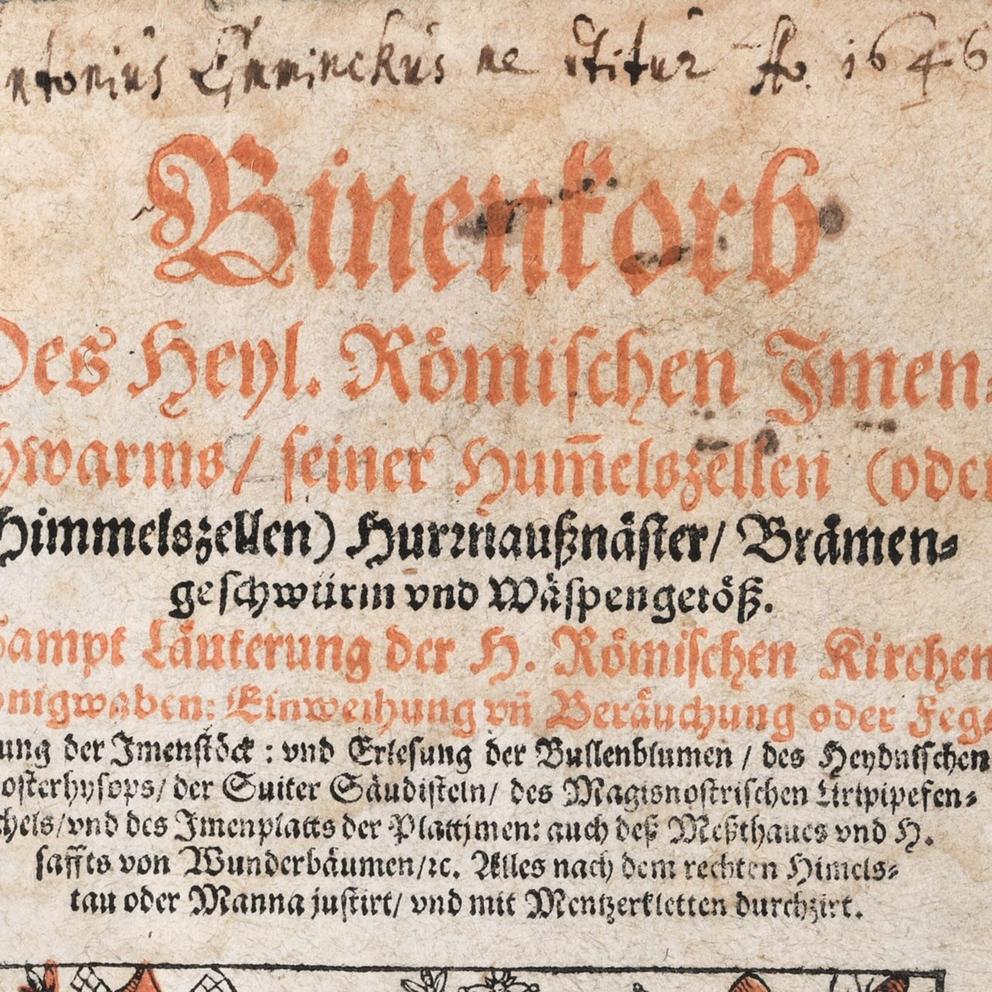 ntonius Emminckus me Ao. 1646
Binenkorb
Des Heyl. Römischen Jmen-
hwarms / seiner Hum̃elszellen (oder
Himmelszellen) Hurrnaußnäster / Brämen-
geschwürm vnd Wäspengetöß.
Sampt Läuterung der H. Römischen Kirchen
onigwaben: Einweihung vñ Beräuchung oder Feg-
ung der Jmenstöck : vnd Erlesung der Bullenblumen / des Heydnischen
osterhysops / der Suiter Säudisteln / des Magisnostrischen Liripipefen-
chels / vnd des Jmenplatts der Plattimen: auch deß Meßthaues vnd H.
saffts von Wunderbäumen / ꝛc. Alles nach dem rechten Himels-
tau oder Manna justirt / vnd mit Mentzerkletten durchzirt.